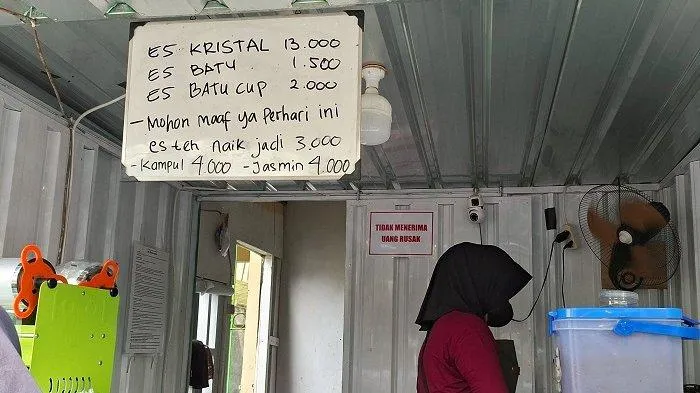 ES KRISTAL 13.000
ES BATU 1.500
ES BATU CUP 2.000
- Mohon maaf ya perhari ini
es teh naik jadi 3.000
- Kampul 4.000 - Jasmin 4.000
TIDAK MENERIMA
UANG RUSAK